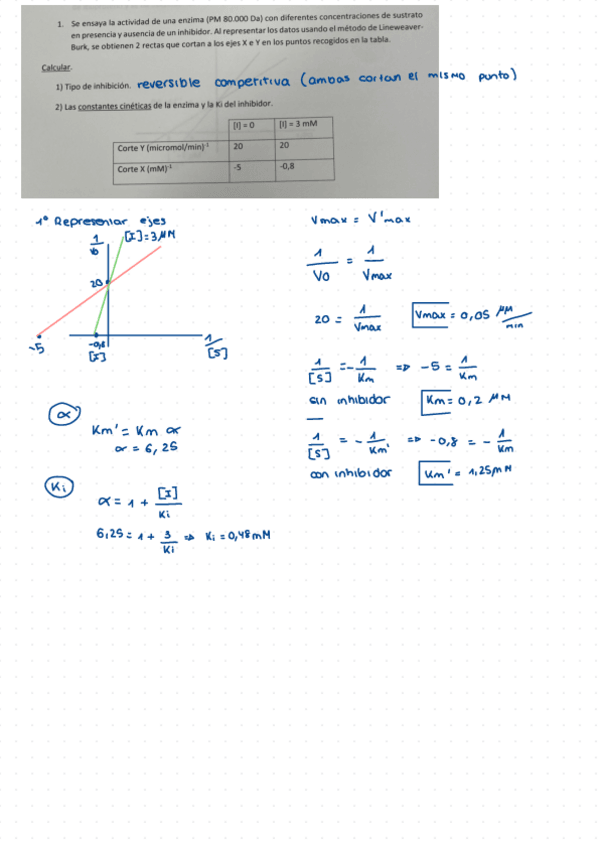 1. Se ensaya la actividad de una enzima (PM 80.000 Da) con diferentes concentraciones de sustrato
en presencia y ausencia de un inhibidor. Al representar los datos usando el método de Lineweaver-
Burk, se obtienen 2 rectas que cortan a los ejes X e Y en los puntos recogidos en la tabla.
Calcular.
1) Tipo de inhibición. reversible competitiva (ambas cortan el mismo punto)
2) Las constantes cinéticas de la enzima y la Ki del inhibidor.
[I] = 0 [I] = 3 mM
Corte Y (micromol/min)⁻¹ 20 20
Corte X (mM)⁻¹ -5 -0,8
1º Representar ejes
1/v0 [I]=3μM
20
-5 -0,8 [I] 1/[S]
α
Km' = Km α
α = 6,25
Ki
α = 1 + [I]/Ki
6,25 = 1 + 3/Ki => Ki = 0,48 mM
Vmax = V'max
1/V0 = 1/Vmax
20 = 1/Vmax Vmax = 0,05 μM/min
1/[S] = - 1/Km => -5 = 1/Km
sin inhibidor Km = 0,2 μM
1/[S] = - 1/Km' => -0,8 = - 1/Km
con inhibidor Km' = 1,25mM